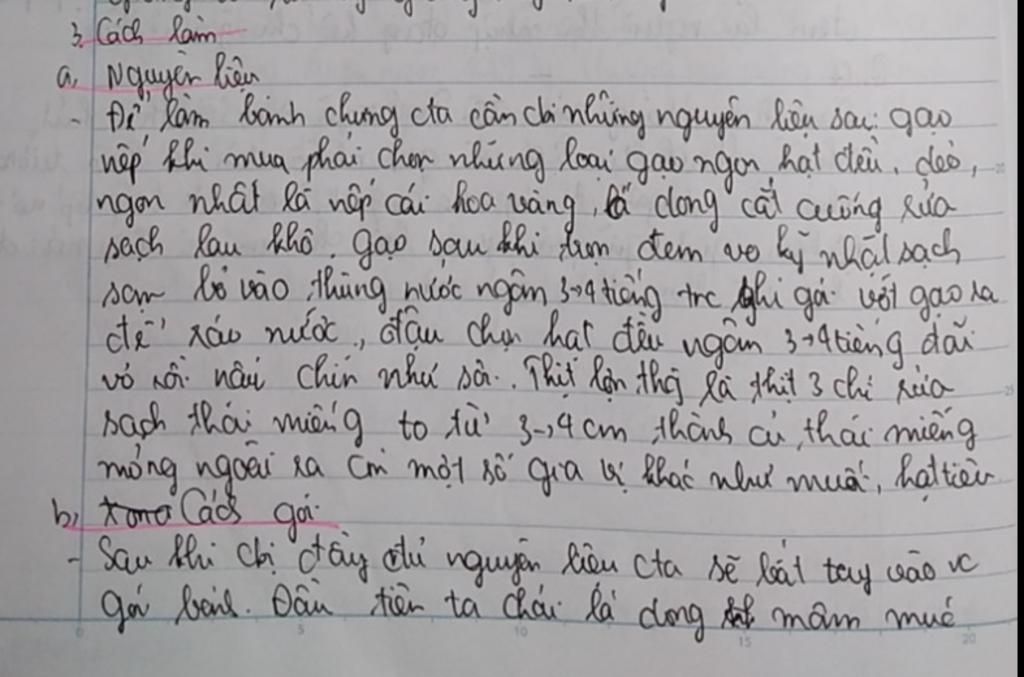 3. Cách làm
a, Nguyên liệu
- Để làm bánh chưng cta cần cbị những nguyên liệu sau: gạo
nếp khi mua phải chọn những loại gạo ngon hạt đều, dẻo,
ngon nhất là nếp cái hoa vàng, lá dong cắt cuống rửa
sạch lau khô. gạo sau khi đem vo kỹ nhặt sạch
sạn bỏ vào thùng nước ngâm 3→4 tiếng trc khi gói vớt gạo ra
để ráo nước, đậu chọn hạt đều ngâm 3→4 tiếng đãi
vỏ rồi nấu chín như sôi. Thịt lợn là thịt 3 chỉ rửa
sạch thái miếng to từ 3→4 cm, hành củ thái miếng
mỏng ngoài ra còn một số gia vị khác như muối, hạt tiêu
b, Cách gói
- Sau khi cbị đầy đủ nguyên liệu cta sẽ bắt tay vào vc
gói bánh. Đầu tiên ta lá dong mâm